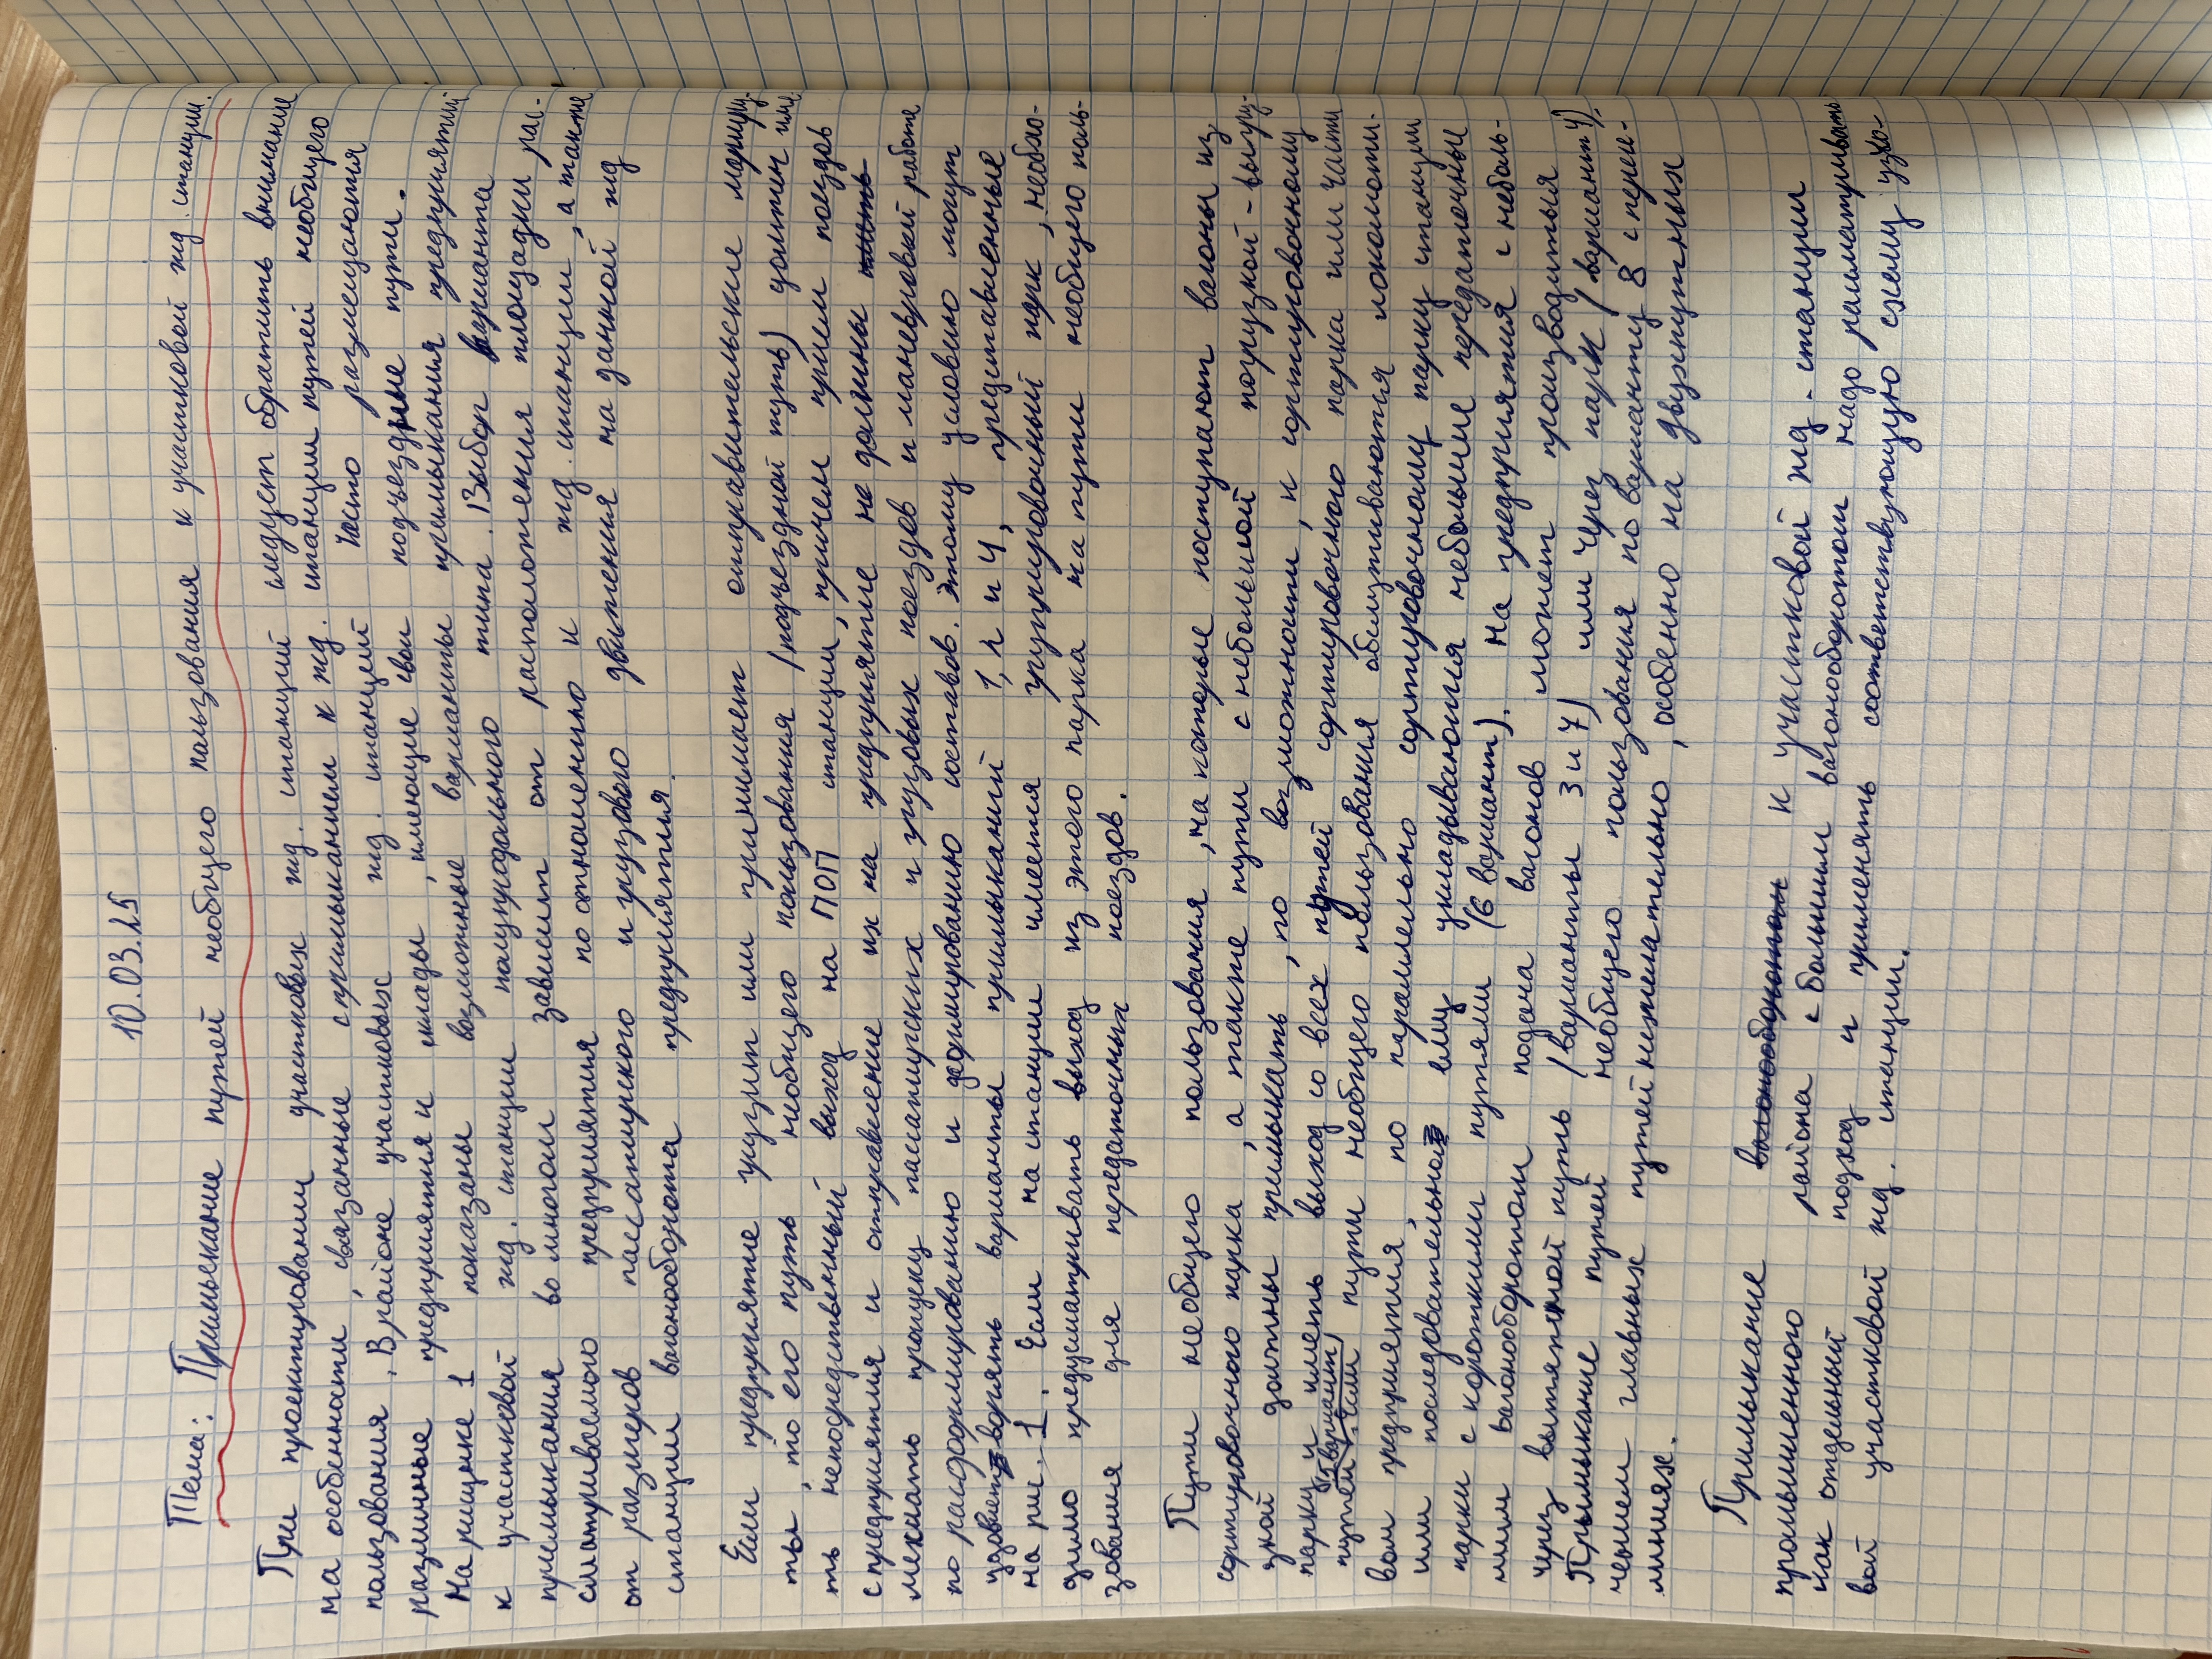 10.03.25
Тема: Примыкание путей необщего пользования к участковой жд. станции.
При проектировании участковых жд. станций следует обратить внимание
на особенности, связанные с примыканием к жд. станции путей необщего
пользования. В районе участковых жд. станций часто размещаются
различные предприятия и склады, имеющие свои подъездные пути.
На рисунке 1 показаны возможные варианты примыкания предприятий
к участковой жд. станции полупродольного типа. Выбор варианта
примыкания во многом зависит от расположения площадки рас-
сматриваемого предприятия по отношению к жд. станции, а также
от размеров пассажирского и грузового движения на данной жд
станции вагонооборота предприятия.
Если предприятие грузит или принимает отправительские маршру-
ты, то его путь необщего пользования (подъездной путь) должен име-
ть непосредственный выход на ПОП станции, причем прием поездов
с предприятия и отправление их на предприятие не должны
мешать пропуску пассажирских и грузовых поездов и маневровой работе
по расформированию и формированию составов. Этому условию могут
удовлетворять варианты примыканий 1, 2 и 4, представленные
на рис. 1. Если на станции имеется группировочный парк, необхо-
димо предусматривать выход из этого парка на пути необщего поль-
зования для передаточных поездов.
Пути необщего пользования, на которые поступают вагоны из
сортировочного парка, а также пути с небольшой погрузкой-выгру-
зкой должны примыкать, по возможности, к сортировочному
парку и иметь выход со всех путей сортировочного парка или части
путей (5 вариант). Если пути необщего пользования обслуживаются локомоти-
вом предприятия, по параллельно сортировочному парку станции
или последовательно ему укладываются небольшие передаточные
парки с короткими путями (6 вариант). На предприятия с неболь-
шим вагонооборотом подача вагонов может производиться
через вытяжной путь (варианты 3 и 7) или через парк (вариант 4).
Примыкание путей необщего пользования по варианту 8 с пересе-
чением главных путей нежелательно, особенно на двухпутных
линиях.
Примыкание к участковой жд. станции
промышленного района с большим вагонооборотом надо рассматривать
как отдельный подход и применять соответствующую схему узло-
вой участковой жд. станции.